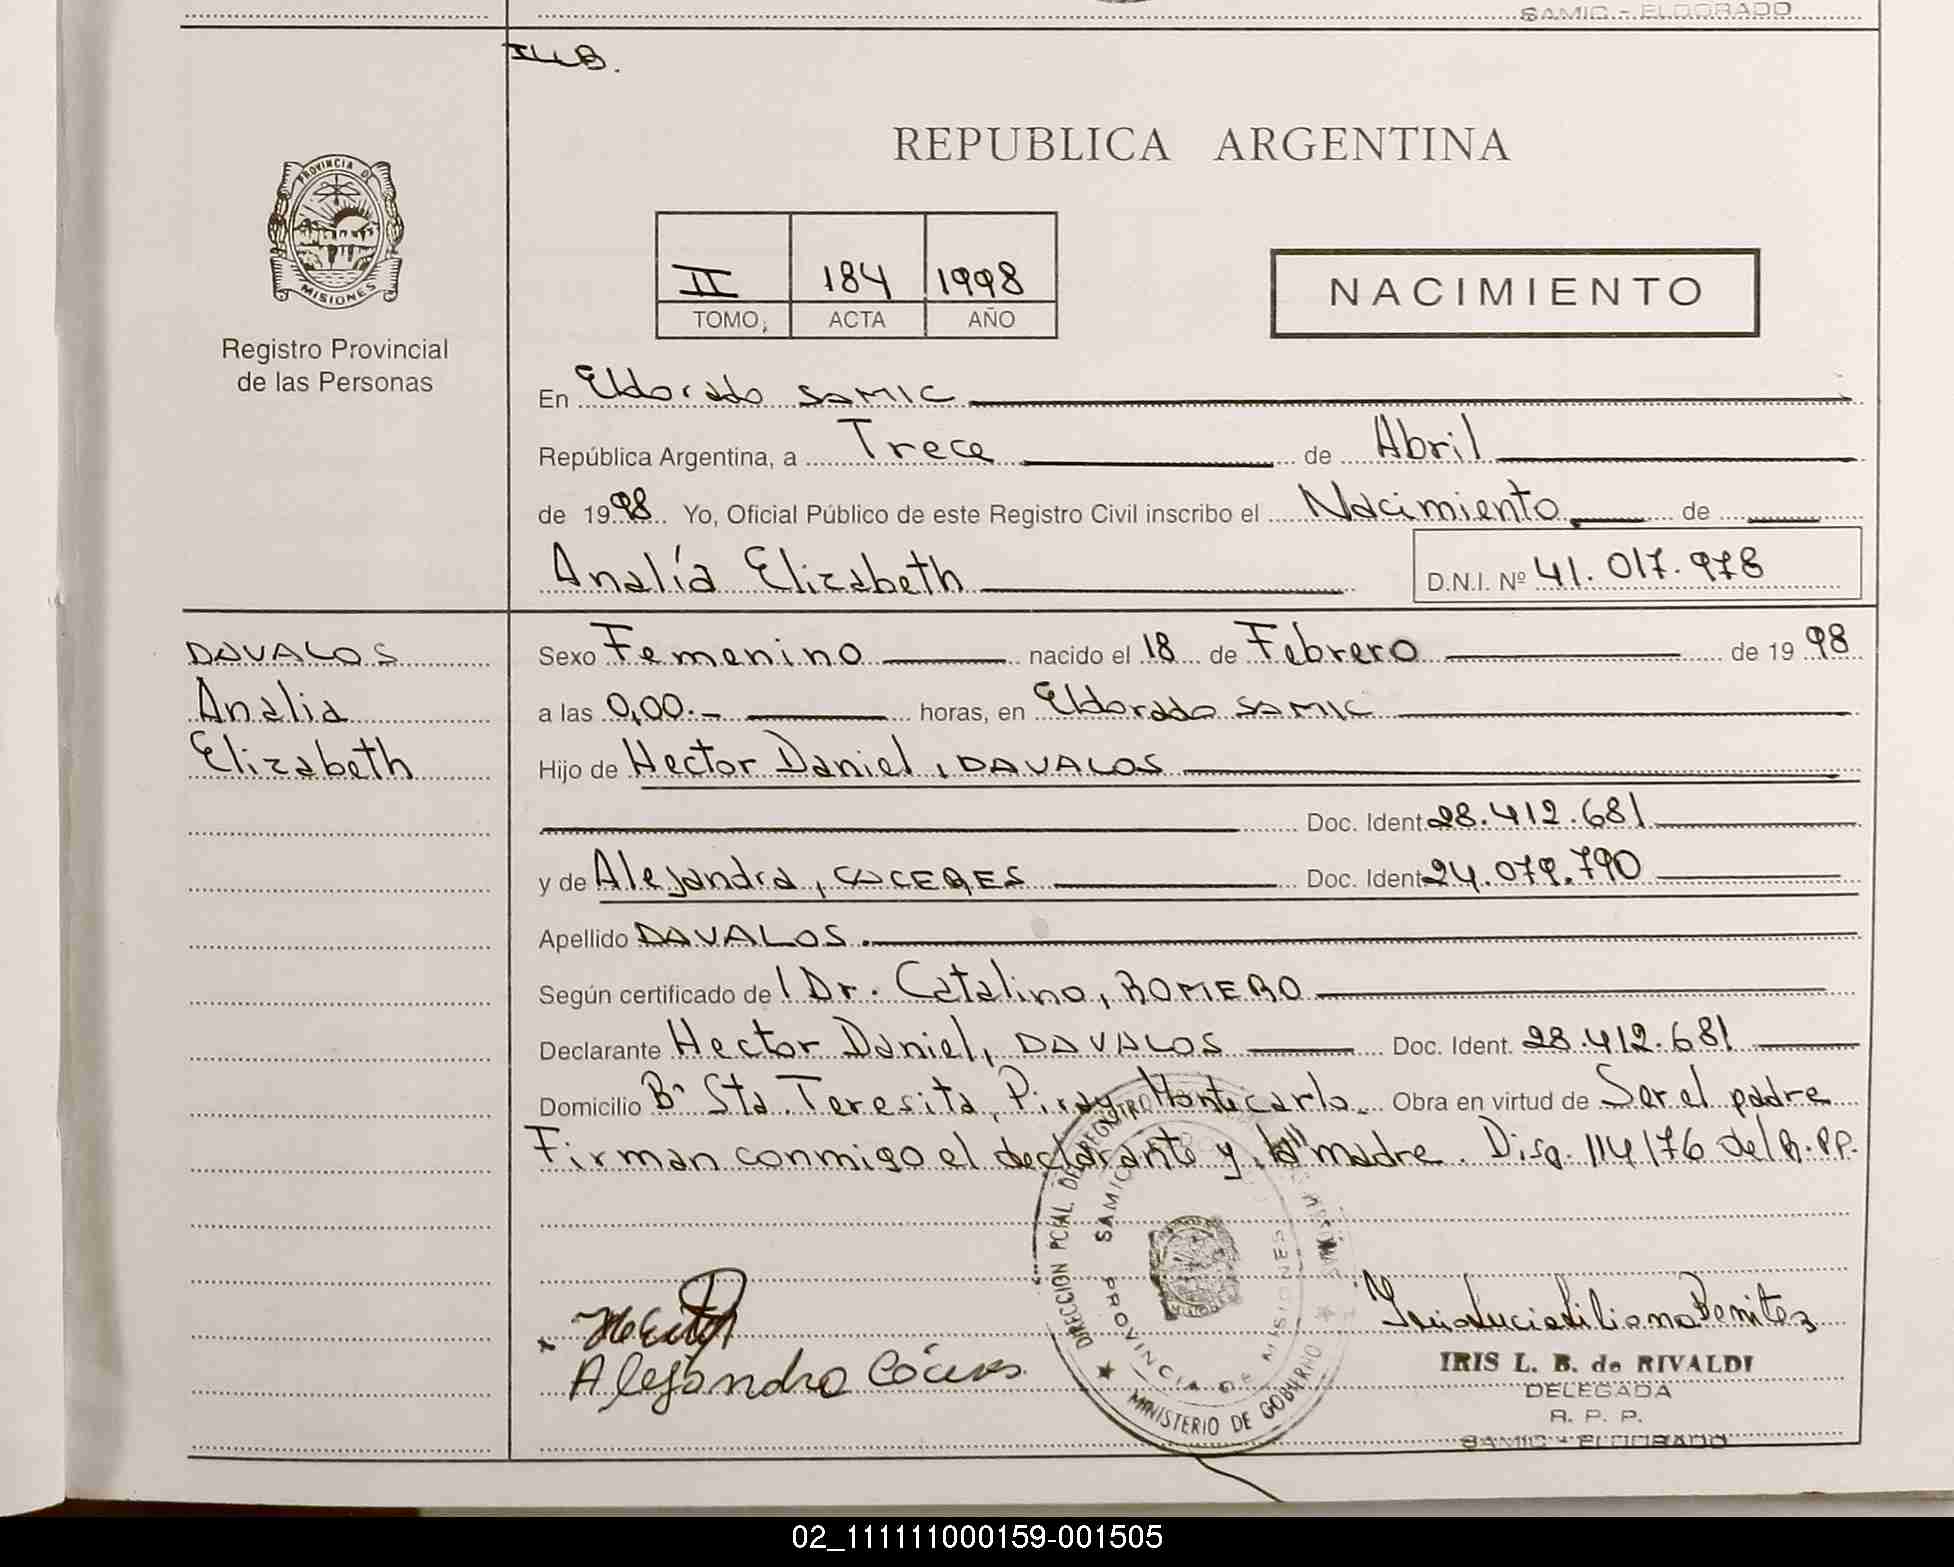 SAMIC - ELDORADO
ILLB.
REPUBLICA ARGENTINA
PROVINCIA DE
MISIONES
Registro Provincial
de las Personas
II 184 1998
TOMO, ACTA AÑO
NACIMIENTO
En Eldorado SAMIC
República Argentina, a Trece de Abril
de 1998 Yo, Oficial Público de este Registro Civil inscribo el Nacimiento de
Analía Elizabeth D.N.I. Nº 41.017.978
DAVALOS
Analia
Elizabeth
Sexo Femenino nacido el 18 de Febrero de 1998
a las 0,00.- horas, en Eldorado SAMIC
Hijo de Hector Daniel, DAVALOS
Doc. Ident. 28.412.681
y de Alejandra, CACERES Doc. Ident. 24.079.790
Apellido DAVALOS.
Según certificado de l Dr. Catalino, ROMERO
Declarante Hector Daniel, DAVALOS Doc. Ident. 28.412.681
Domicilio Bº Sta. Teresita, Piray Montecarlo. Obra en virtud de Ser el padre
Firman conmigo el declarante y "la" madre. Disp. 114/76 del R.PP.
DIRECCION PCIAL. DE REGISTRO
SAMIC
PROVINCIA DE MISIONES
MINISTERIO DE GOBIERNO
Hector
Alejandra Cáceres
Iris Lucia Liliana Benitez
IRIS L. B. de RIVALDI
DELEGADA
R. P. P.
SAMIC - ELDORADO
02_111111000159-001505